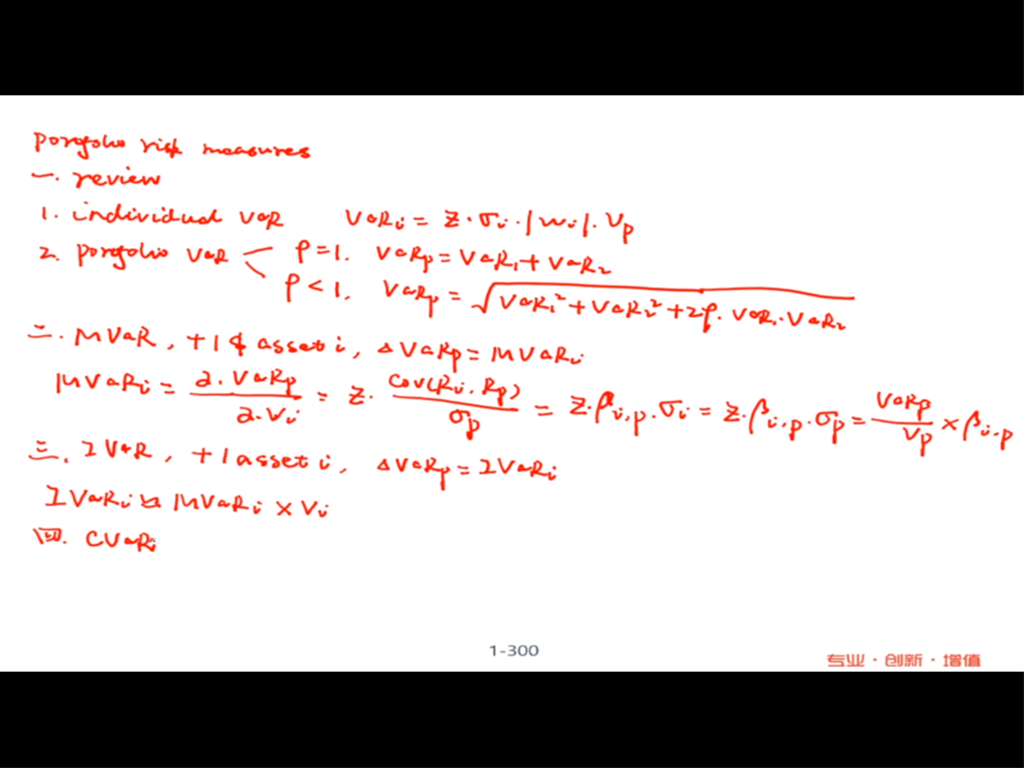 Portfolio risk measures
一. review
1. individual VaR VaRi = Z·σi·|wi|·Vp
2. portfolio VaR ρ=1. VaRp = VaR1 + VaR2
ρ<1. VaRp = √(VaR1² + VaR2² + 2ρ·VaR1·VaR2)
二. MVaR, +1$ asset i, ΔVaRp = MVaRi
MVaRi = ∂·VaRp / ∂·Vi = Z· cov(Ri, Rp) / σp = Z·βi,p·σi = Z·βi,p·σp = VaRp / Vp × βi,p
三. IVaR, +1 asset i, ΔVaRp = IVaRi
IVaRi ≈ MVaRi × Vi
四. CVaRi
1-300
专业·创新·增值